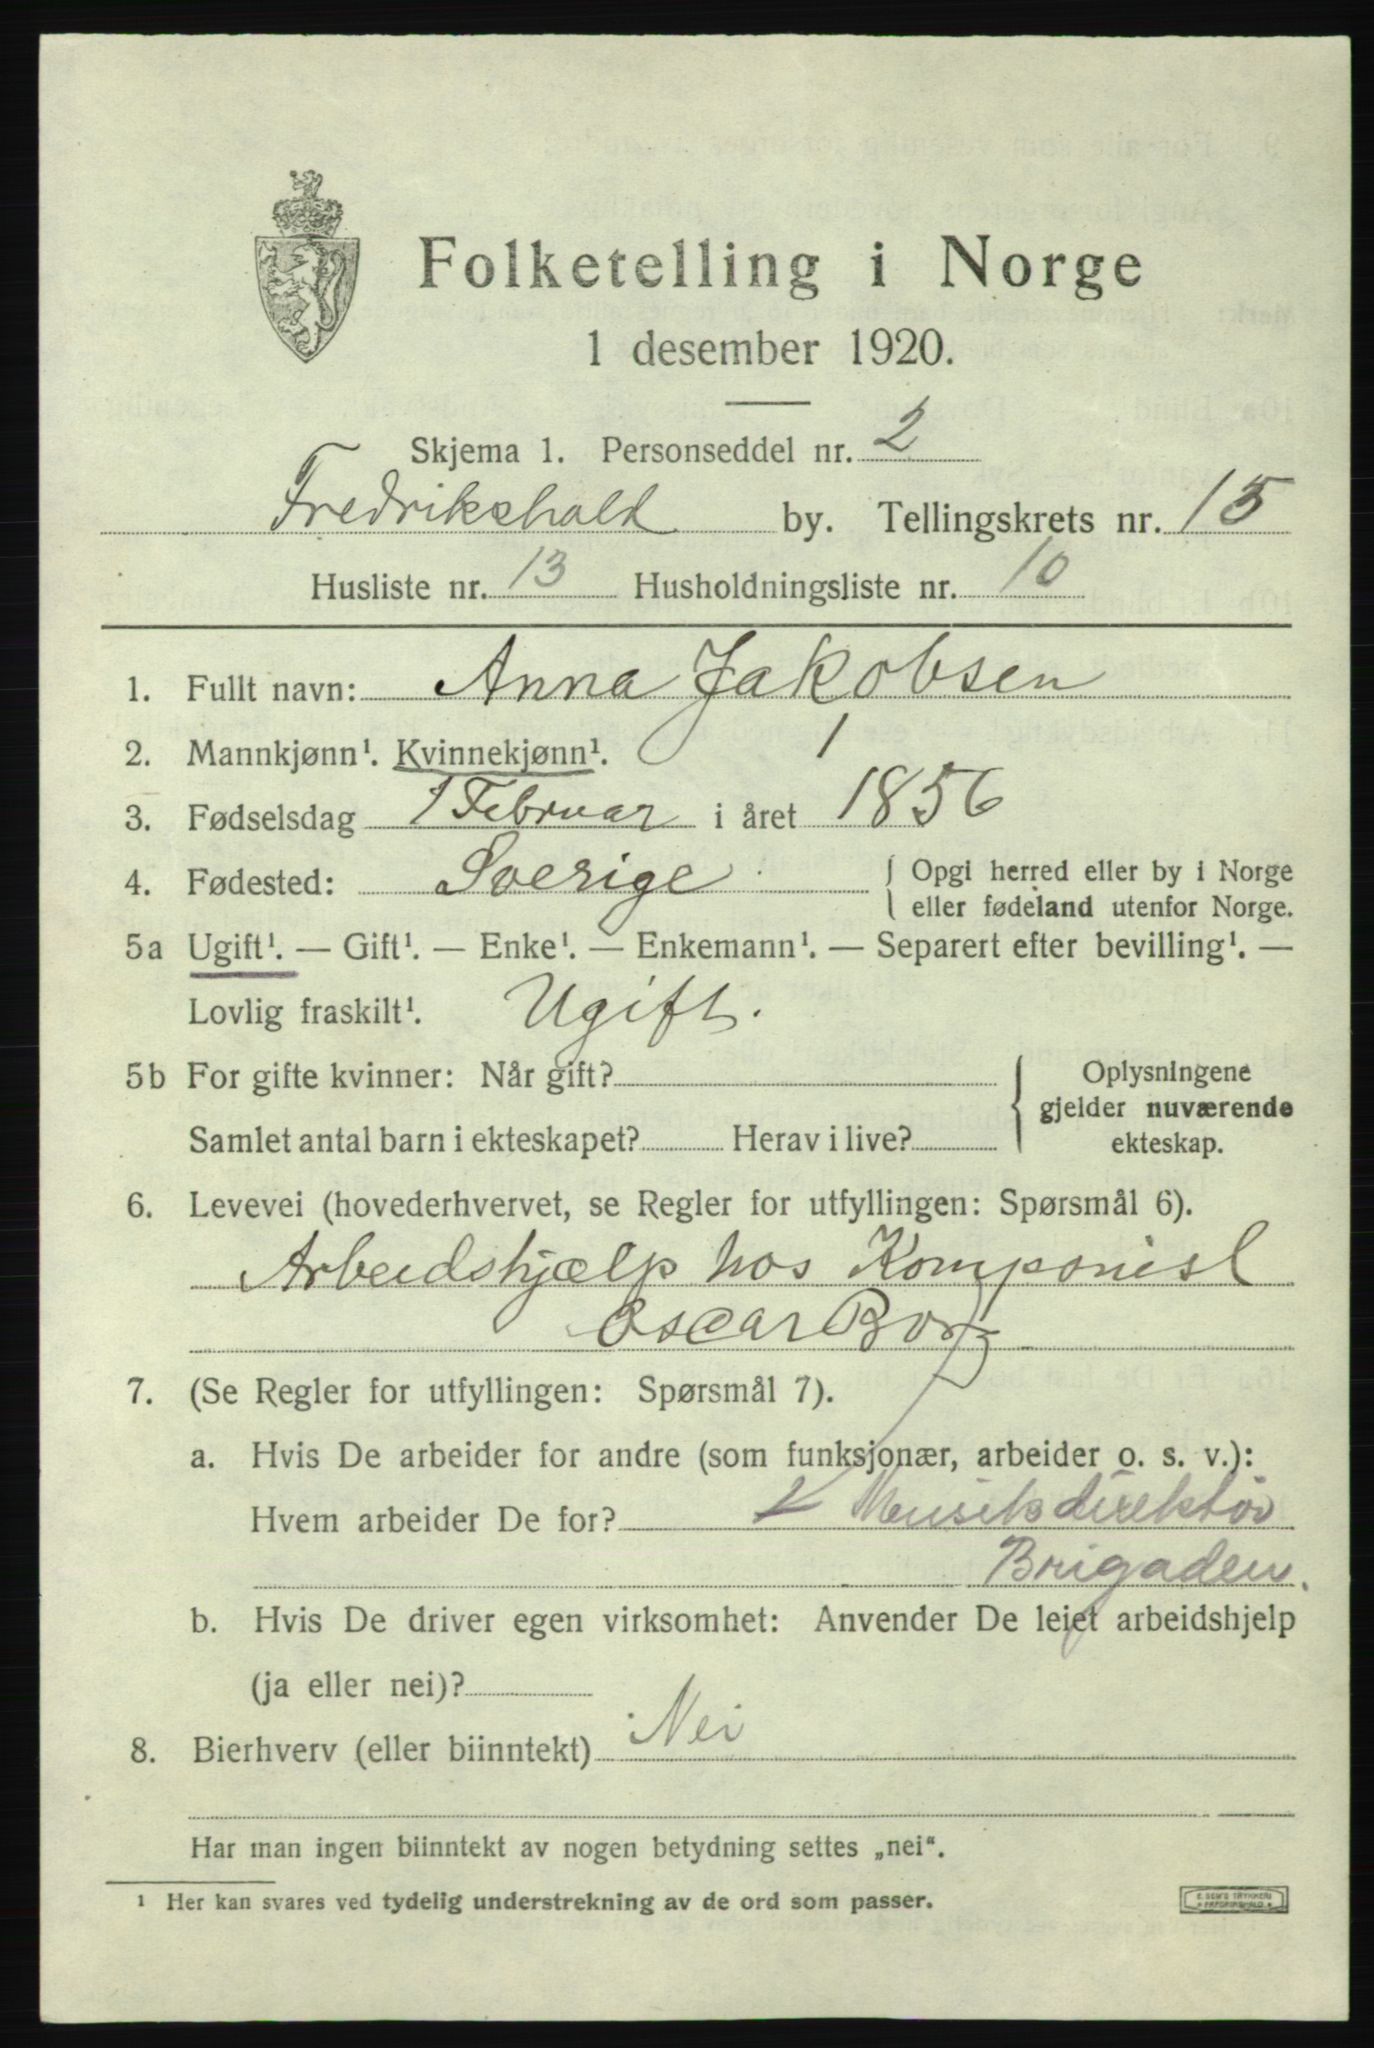 Folketelling i Norge
1 desember 1920.
Skjema 1. Personseddel nr. 2
Fredrikshald by. Tellingskrets nr. 15
Husliste nr. 13 Husholdningsliste nr. 10
1. Fullt navn: Anna Jakobsen
2. Mannkjønn¹. Kvinnekjønn¹.
3. Fødselsdag 1 Februar i året 1856
4. Fødested: Sverige { Opgi herred eller by i Norge
eller fødeland utenfor Norge.
5a Ugift¹. — Gift¹. — Enke¹. — Enkemann¹. — Separert efter bevilling¹. —
Lovlig fraskilt¹. Ugift.
5b For gifte kvinner: Når gift? { Oplysningene
gjelder nuværende
Samlet antal barn i ekteskapet? Herav i live? ekteskap.
6. Levevei (hovederhvervet, se Regler for utfyllingen: Spørsmål 6).
Arbeidshjælp hos Komponist
Oscar Borg
7. (Se Regler for utfyllingen: Spørsmål 7).
a. Hvis De arbeider for andre (som funksjonær, arbeider o. s. v.):
Hvem arbeider De for? Musikdirektør
Brigaden.
b. Hvis De driver egen virksomhet: Anvender De leiet arbeidshjelp
(ja eller nei)?
8. Bierhverv (eller biinntekt) Nei
Har man ingen biinntekt av nogen betydning settes „nei“.
¹ Her kan svares ved tydelig understrekning av de ord som passer.
E. SEM'S TRYKKERI
FREDRIKSHALD